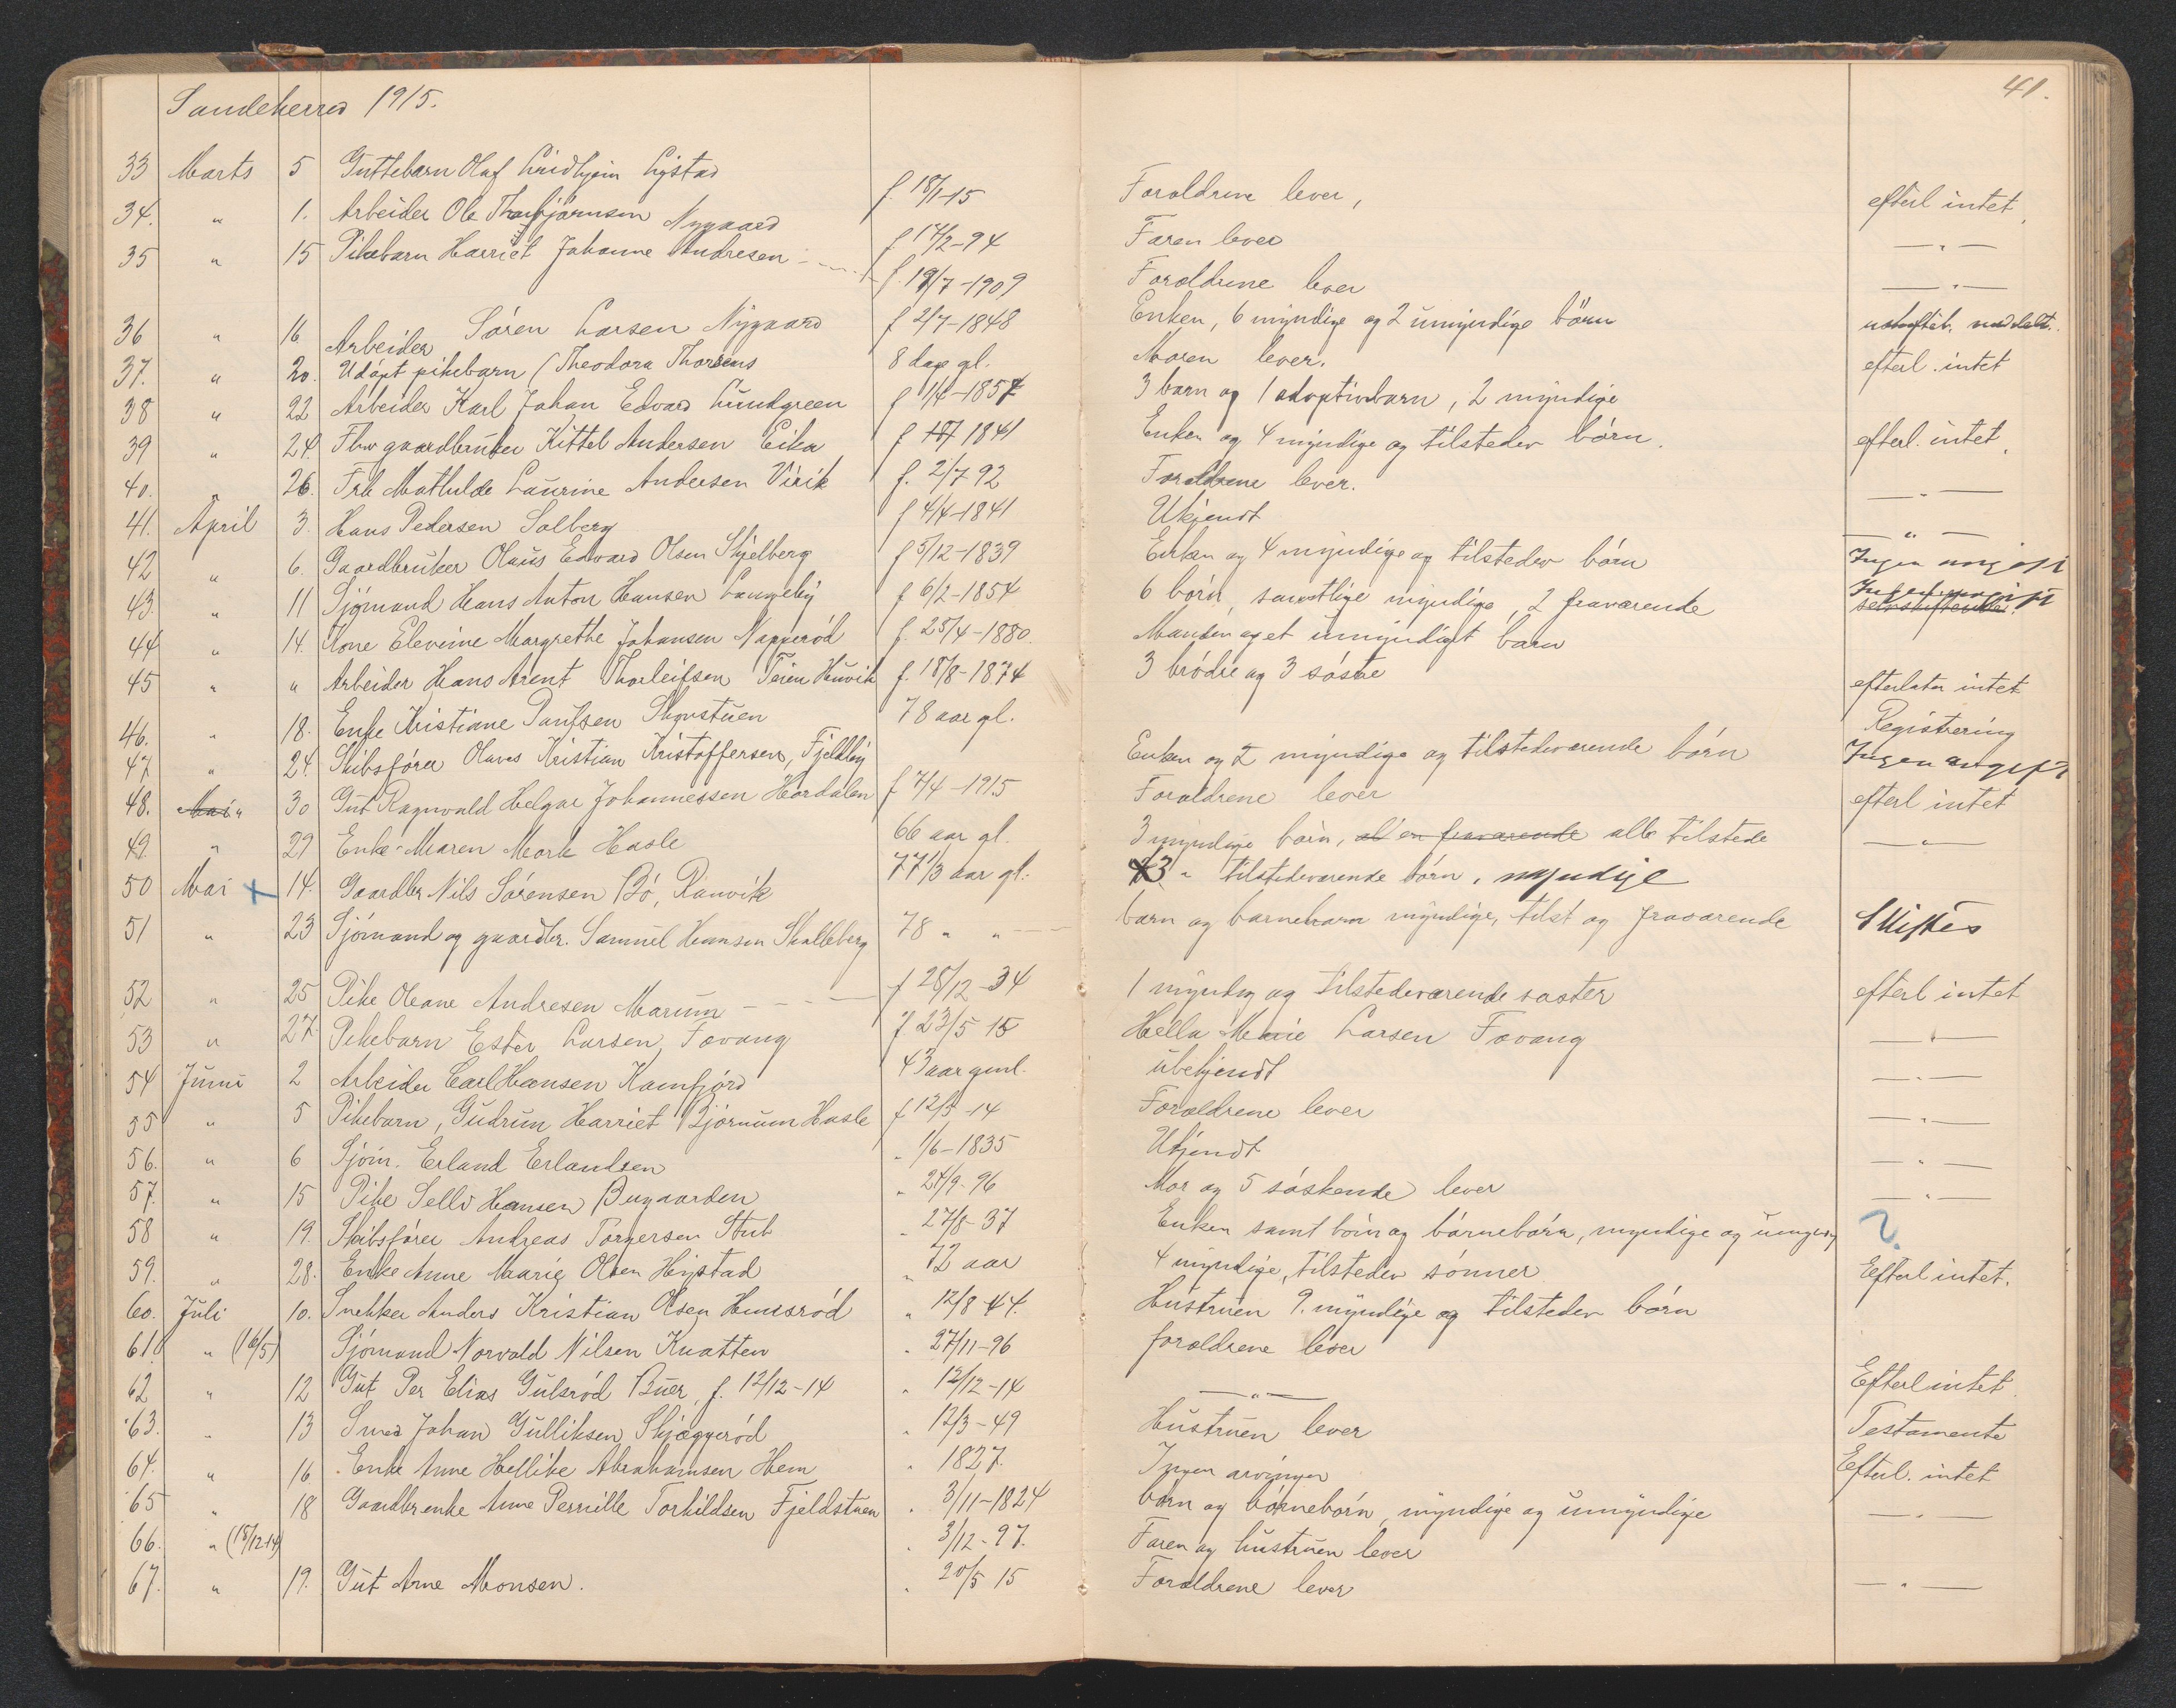 41.
Sandeherred 1915.
33 Marts 5 Guttebarn Olaf Lindhjem Lystad f. 18/1-15 Forældrene lever, efterl intet
34. " 1. Arbeider Ole Thorbjørnsen Nygaard f 14/2-94 Faren lever —"—
35 " 15 Pikebarn Harriet Johanne Andresen f. 19/7-1909 Forældrene lever —"—
36 " 16 Arbeider Søren Larsen Nygaard f 2/7-1848 Enken, 6 myndige og 2 umyndige börn
37. " 20. Udöpt pikebarn (Theodora Thorsens 8 dage gl. Moren lever. efterl. intet
38 " 22 Arbeider Karl Johan Edvard Lundgreen f 1/4-1857 3 barn og 1 adoptivbarn, 2 myndige
39 " 24. Fhv gaardbruker Kittel Andersen Eika f 1841 Enken og 4 myndige og tilstedev börn. efterl. intet
40. " 26. Frk Mathilde Laurine Andersen Virik f. 2/7 92 Forældrene lever. —"—
41. April 3. Hans Pedersen Solberg f 4/4-1841 Ukjendt —"—
42 " 6. Gaardbruker Olaus Edvard Olsen Skjelberg f 5/12-1839 Enken og 4 myndige og tilstedev börn Ingen angift
43. " 11 Sjømand Hans Anton Hansen Langeby f 6/2-1854 6 börn, samtlige myndige, 2 fraværende Ingen angift
44 " 14. Kone Elevine Margrethe Johansen Napperød f. 25/4-1880. Manden og et umyndigt barn
45 " " Arbeider Hans Arent Thorleifsen Teien Huvik f. 18/8-1874 3 brødre og 3 søstre efterlater intet
46. " 18. Enke Kristiane Paulsen Skovstuen 78 aar gl. Registrering
47 " 24. Skibsfører Olaves Kristian Kristoffersen, Fjeldby Enken og 2 myndige og tilstedeværende börn Ingen angift
48. Mai " 30 Gut Ragnvald Helgar Johannessen Hørdalen f 7/4-1915 Forældrene lever efterl intet
49. " 29 Enke Maren Mork Hasle 66 aar gl. 3 myndige börn, al en fraværende alle tilstede —"—
50 Mai + 14. Gaardbr Nils Sørensen Bö, Ranvik 77 1/3 aar gl. 3 " tilstedeværende börn, myndige
51 " 23 Sjømand og gaardbr. Samuel Hansen Skalleberg 78 " " barn og barnebarn myndige, tilst og fraværende Skiftes
52 " 25 Pike Oleane Andresen Marum f 28/12-34 1 myndig og tilstedeværende søster efterl intet
53 " 27 Pikebarn Ester Larsen, Fevang f 23/5 15 Hella Marie Larsen Fevang —"—
54 Juni 2 Arbeider Carl Hansen Kamfjord 43 aar gml. ubekjendt —"—
55 " 5 Pikebarn, Gudrun Harriet Bjørnum Hasle f 12/5-14 Forældrene lever —"—
56. " 6 Sjöm. Erland Erlandsen " 1/6-1835 Ukjendt —"—
57. " 15 Pike Selli Hansen Bugaarden " 24/9-96 Mor og 5 søskende lever —"—
58 " 19. Skibsfører Andreas Torgersen Stub " 27/8-37 Enken samt börn og börnebörn, myndige og umyndig ?
59. " 28. Enke Anne Marie Olsen Hystad " 72 aar 4 myndige, tilstedev sønner Efterl intet.
60. Juli 10. Snekker Anders Kristian Olsen Haussrød " 12/8-44. Hustruen 9. myndige og tilstedev börn
61. " (16/5) Sjømand Norvald Nilsen Knatten " 27/11-96 forældrene lever
62 " 12 Gut Per Elias Gulsrød Buer, f. 12/12-14 " 12/12-14 —"— Efterl intet
63. " 13 Smed Johan Gulliksen Skjæggerød " 12/3-49 Hustruen lever Testamente
64. " 16 Enke Anne Hellike Abrahamsen Hem " 1827. Ingen arvinger Efterl. intet
65 " 18 Gaardbr enke Anne Pernille Torkildsen Fjeldstuen " 3/11-1824 barn og börnebörn, myndige og umyndige —"—
66. " (18/12-14) " 3/12-97. Faren og hustruen lever
67. " 19. Gut Arne Monsen. " 20/5 15 Forældrene lever —"—